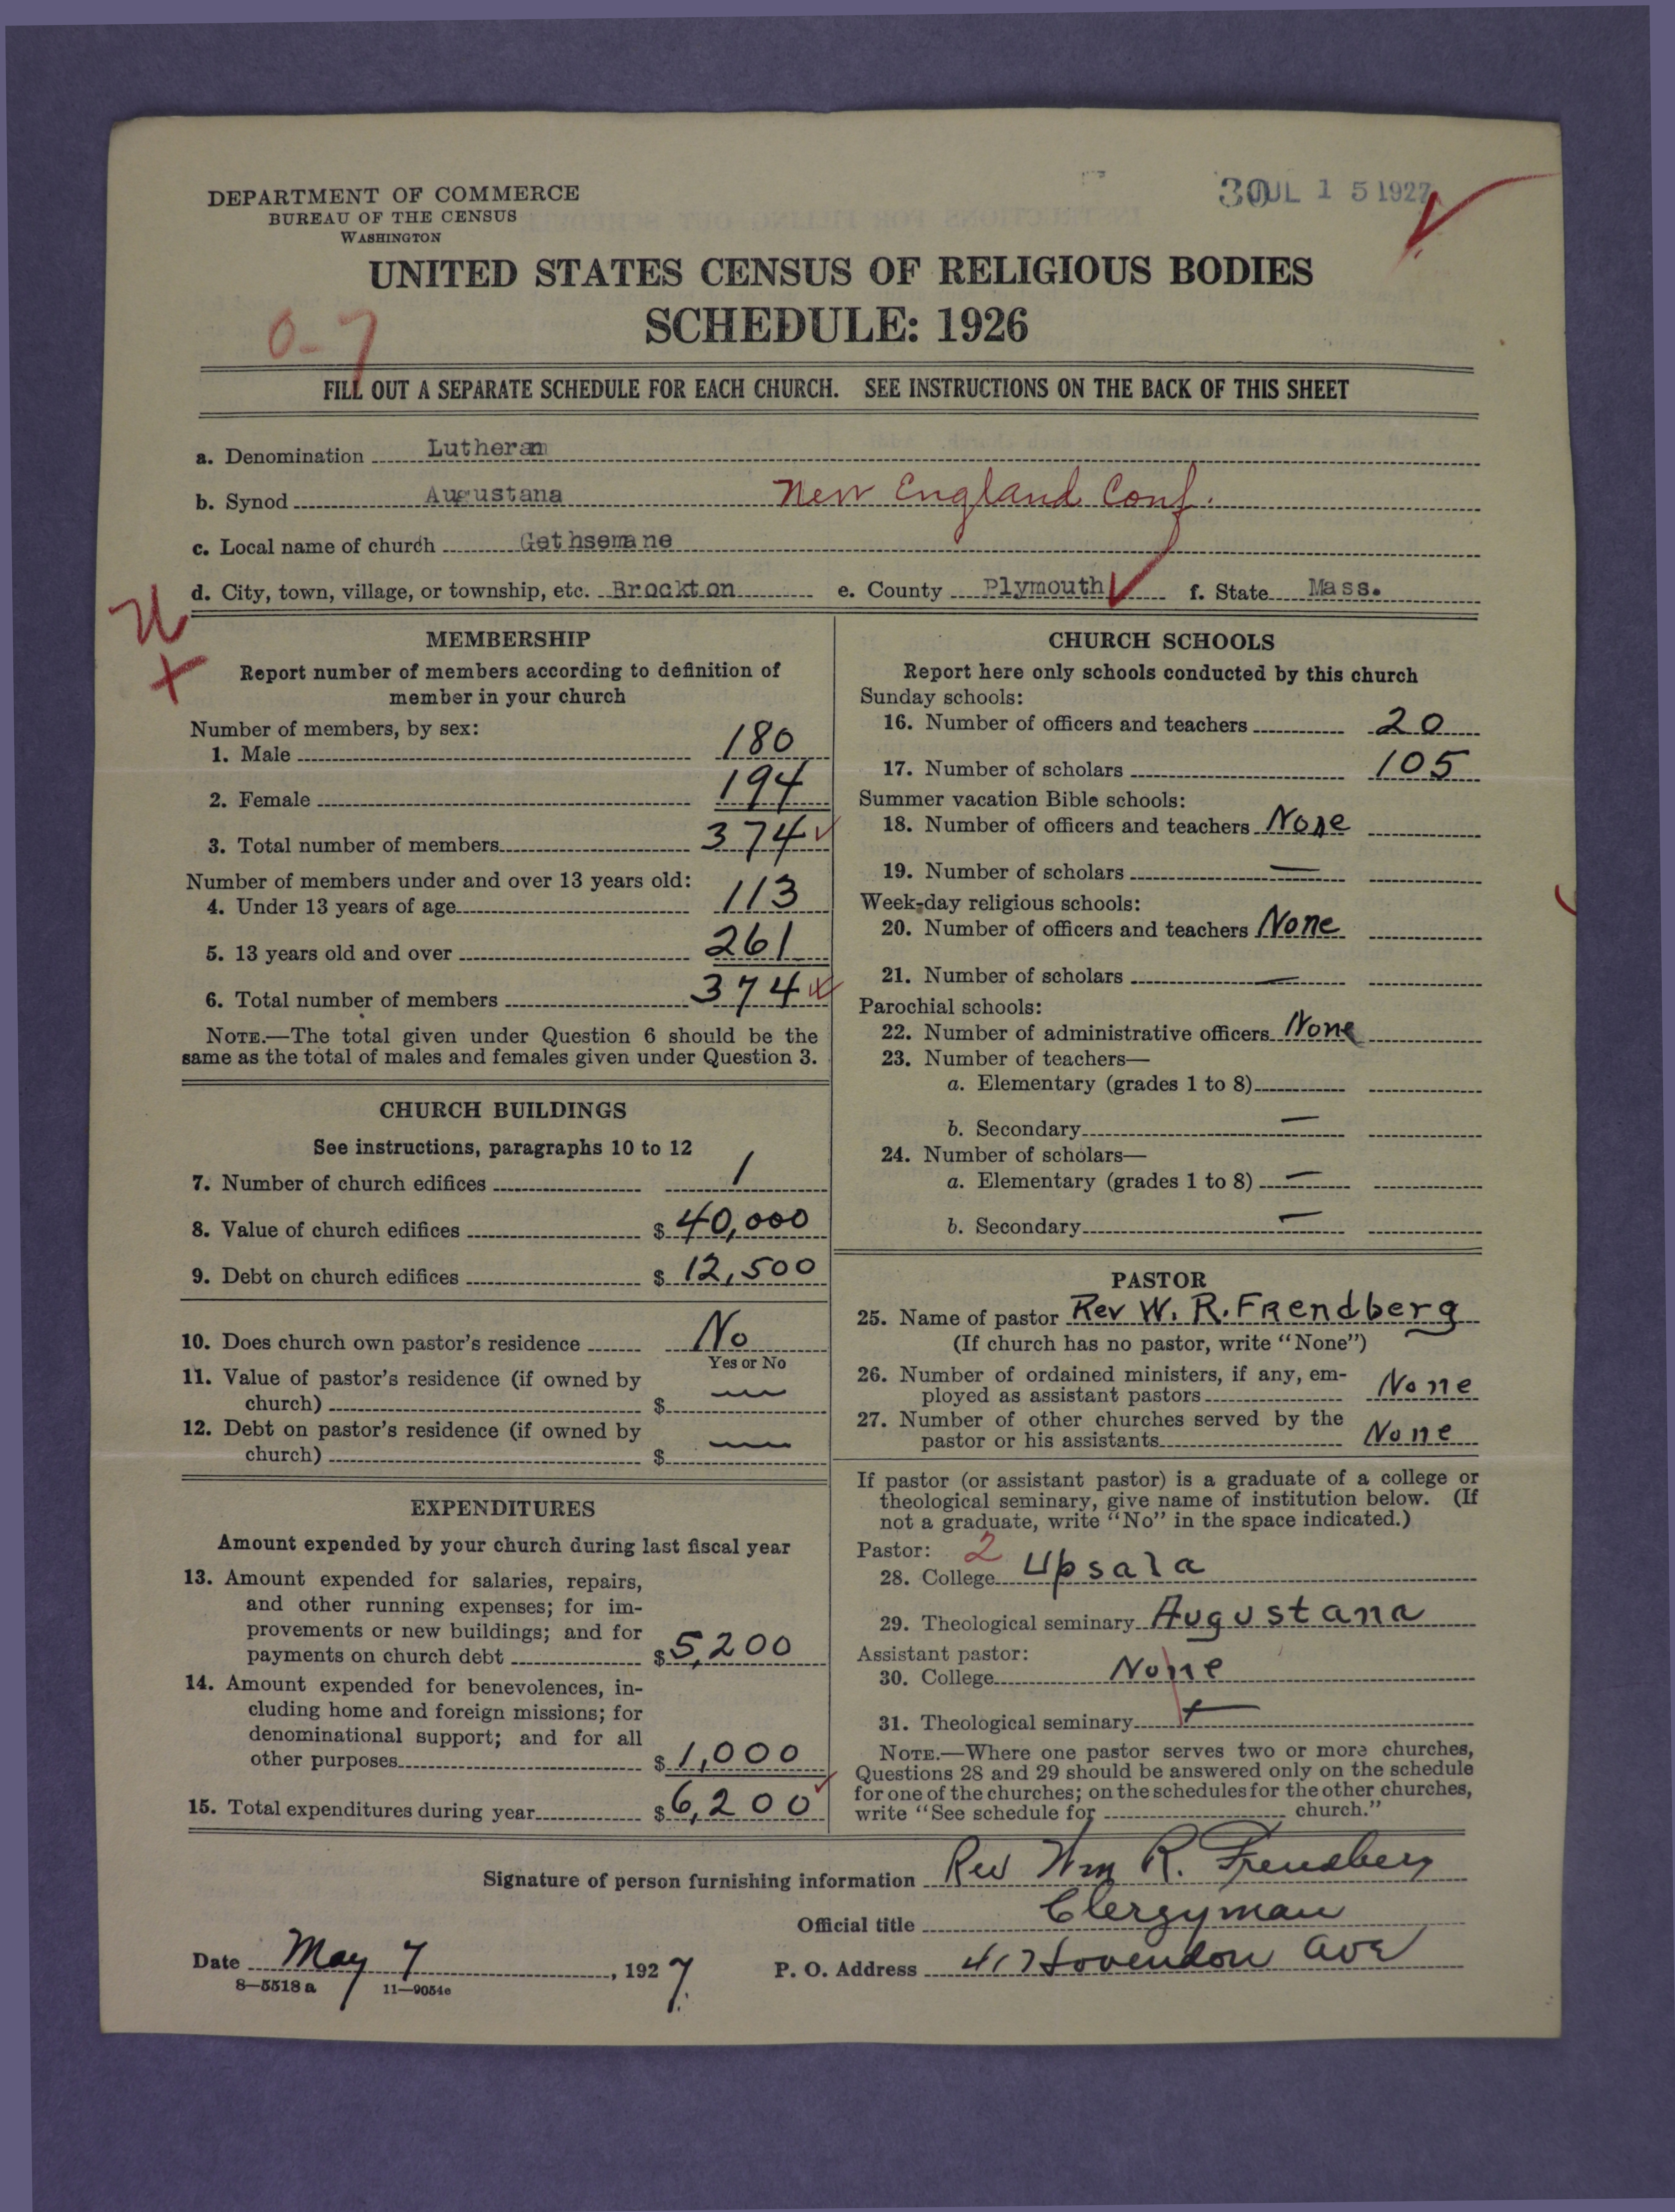 DEPARTMENT OF COMMERCE
BUREAU OF THE CENSUS
WASHINGTON
30 JUL 15 1927
UNITED STATES CENSUS OF RELIGIOUS BODIES
SCHEDULE: 1926
0-7
FILL OUT A SEPARATE SCHEDULE FOR EACH CHURCH. SEE INSTRUCTIONS ON THE BACK OF THIS SHEET
a. Denomination Lutheran
b. Synod Augustana New England Conf.
c. Local name of church Gethsemane
d. City, town, village, or township, etc. Brockton e. County Plymouth f. State Mass.
MEMBERSHIP
Report number of members according to definition of
member in your church
Number of members, by sex:
1. Male 180
2. Female 194
3. Total number of members 374
Number of members under and over 13 years old:
4. Under 13 years of age 113
5. 13 years old and over 261
6. Total number of members 374
NOTE.—The total given under Question 6 should be the
same as the total of males and females given under Question 3.
CHURCH BUILDINGS
See instructions, paragraphs 10 to 12
7. Number of church edifices 1
8. Value of church edifices $ 40,000
9. Debt on church edifices $ 12,500
10. Does church own pastor's residence No
Yes or No
11. Value of pastor's residence (if owned by
church) $ —
12. Debt on pastor's residence (if owned by
church) $ —
EXPENDITURES
Amount expended by your church during last fiscal year
13. Amount expended for salaries, repairs,
and other running expenses; for im-
provements or new buildings; and for
payments on church debt $ 5,200
14. Amount expended for benevolences, in-
cluding home and foreign missions; for
denominational support; and for all
other purposes $ 1,000
15. Total expenditures during year $ 6,200
CHURCH SCHOOLS
Report here only schools conducted by this church
Sunday schools:
16. Number of officers and teachers 20
17. Number of scholars 105
Summer vacation Bible schools:
18. Number of officers and teachers None
19. Number of scholars —
Week-day religious schools:
20. Number of officers and teachers None
21. Number of scholars —
Parochial schools:
22. Number of administrative officers None
23. Number of teachers—
a. Elementary (grades 1 to 8)
b. Secondary —
24. Number of scholars—
a. Elementary (grades 1 to 8) —
b. Secondary —
PASTOR
25. Name of pastor Rev W. R. Frendberg
(If church has no pastor, write "None")
26. Number of ordained ministers, if any, em-
ployed as assistant pastors None
27. Number of other churches served by the
pastor or his assistants None
If pastor (or assistant pastor) is a graduate of a college or
theological seminary, give name of institution below. (If
not a graduate, write "No" in the space indicated.)
Pastor: 2
28. College Upsala
29. Theological seminary Augustana
Assistant pastor:
30. College None
31. Theological seminary —
NOTE.—Where one pastor serves two or more churches,
Questions 28 and 29 should be answered only on the schedule
for one of the churches; on the schedules for the other churches,
write "See schedule for church."
Signature of person furnishing information Rev Wm R. Frendberg
Official title Clergyman
Date May 7, 1927. P. O. Address 417 Hovendon Ave
8-5518 a 11-9054e